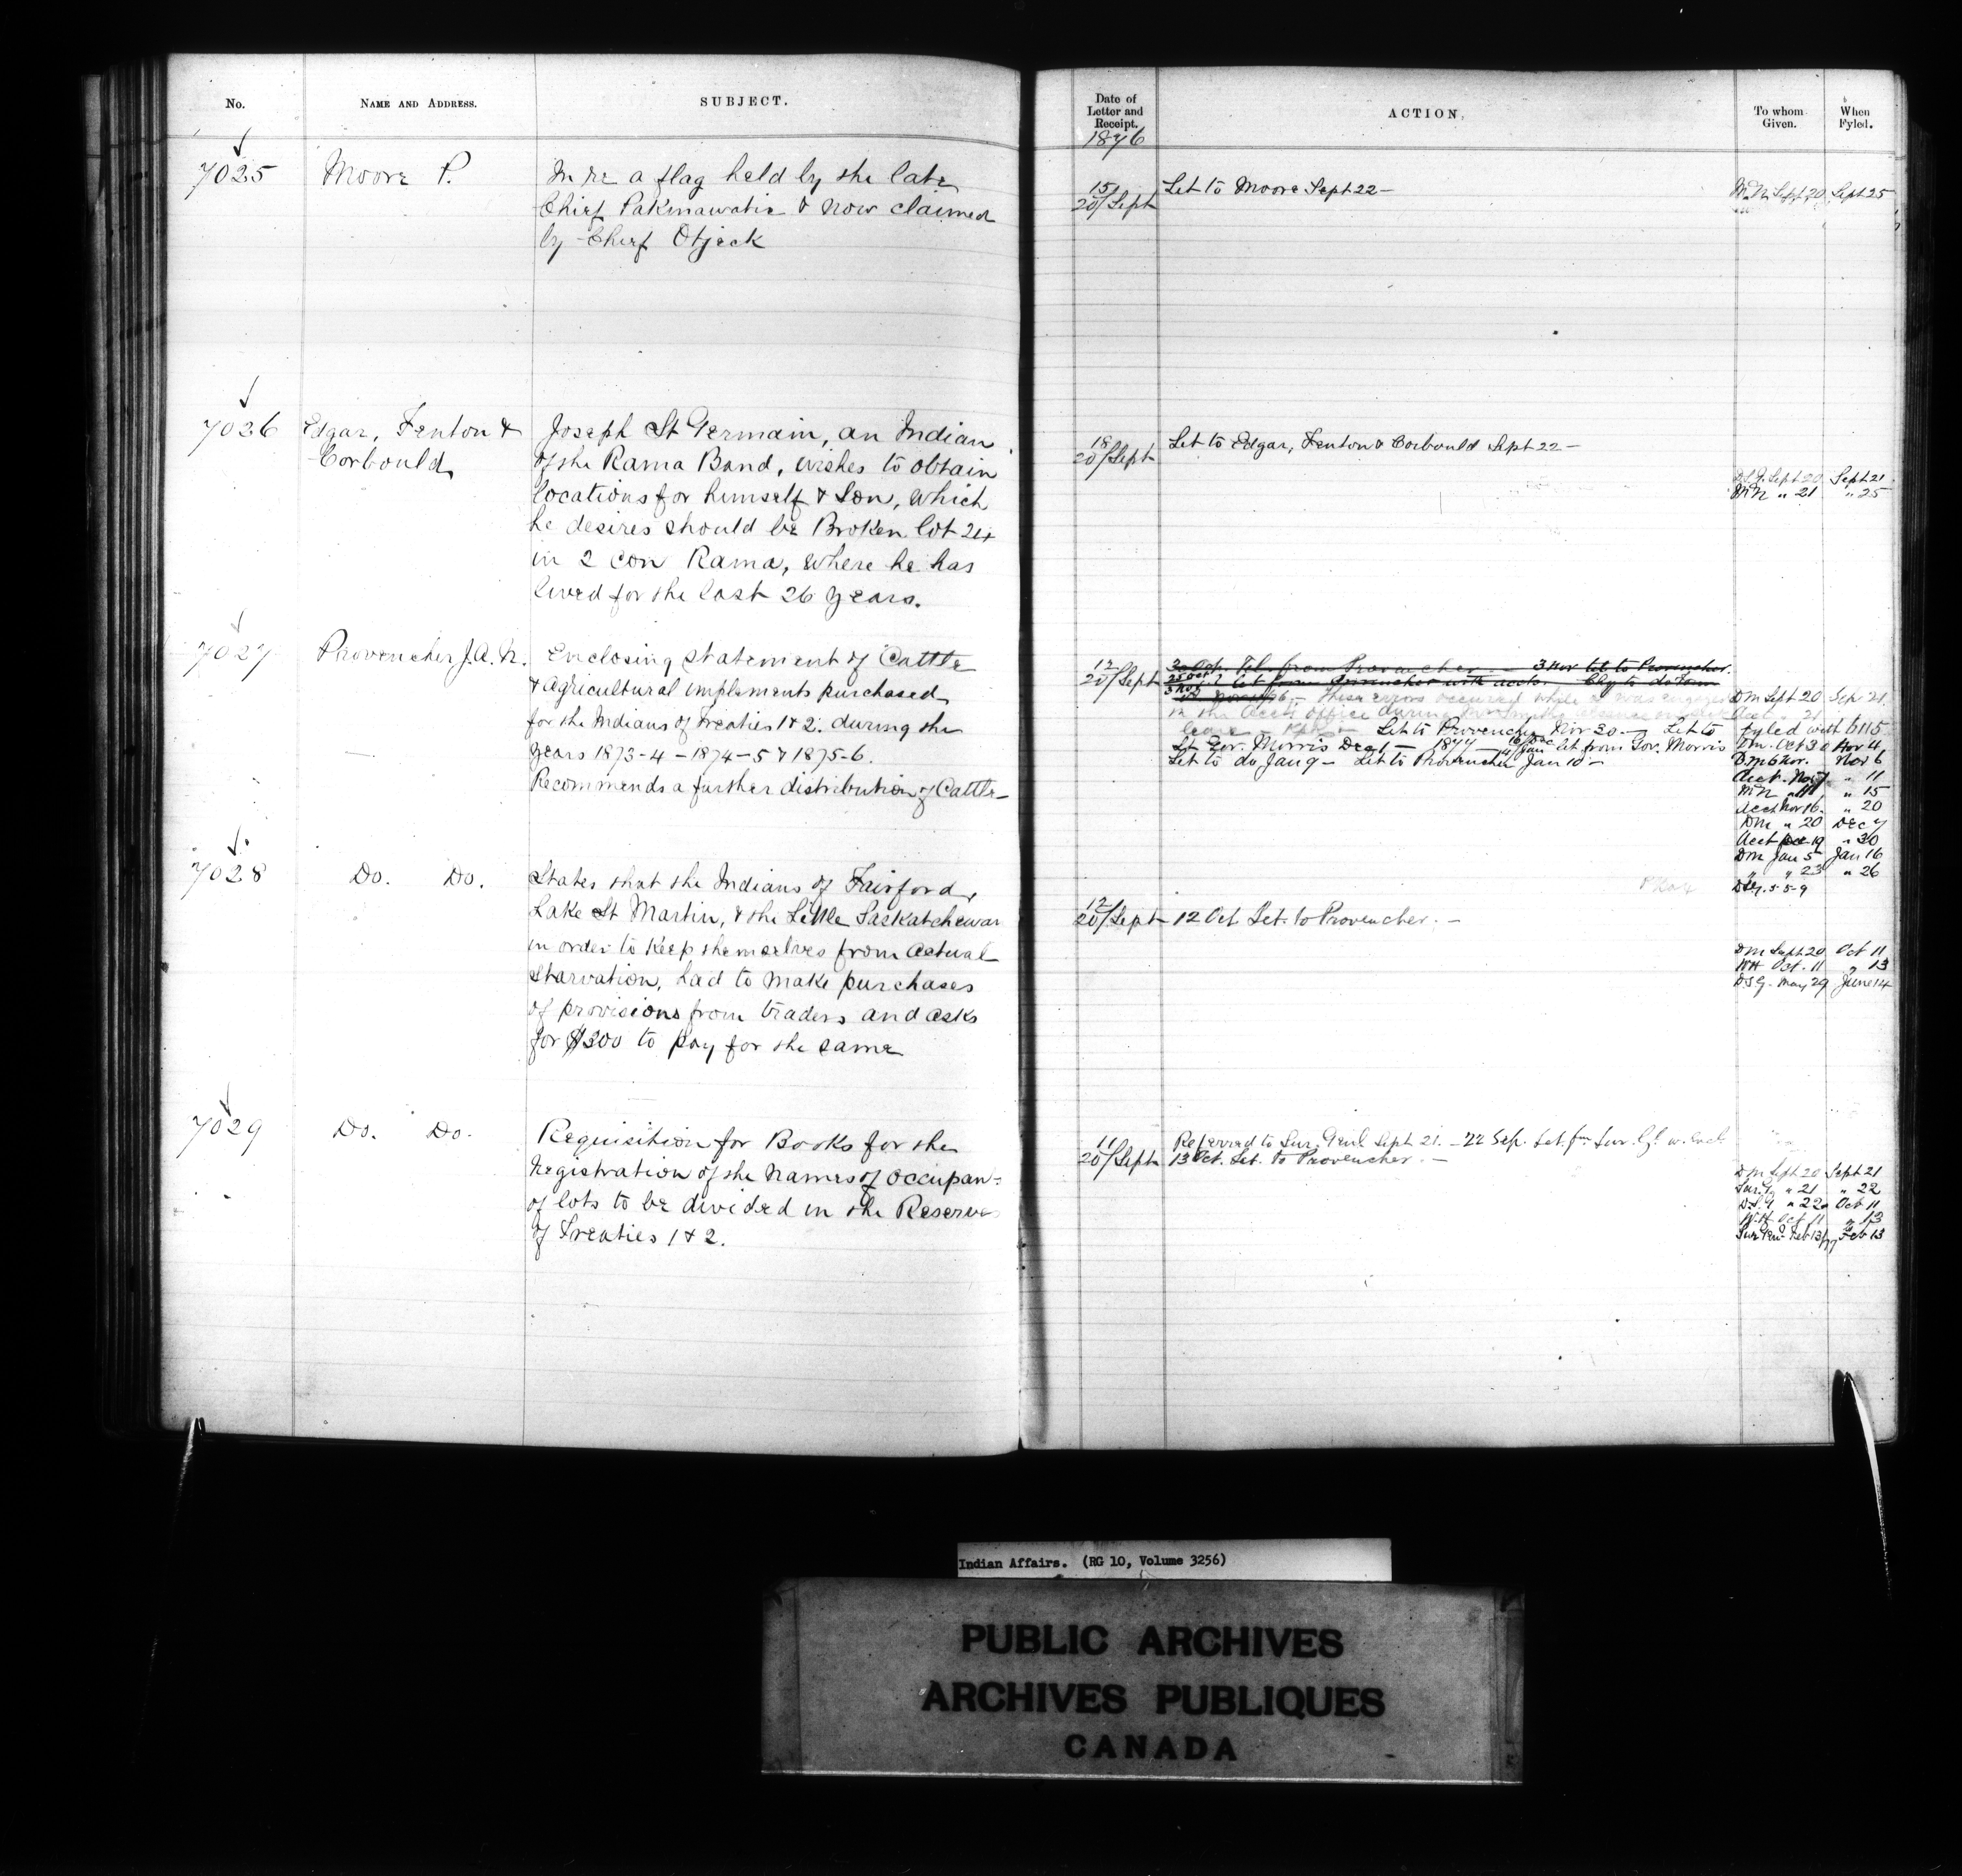 No.
NAME AND ADDRESS.
SUBJECT.
7025
Moore P.
In re a flag held by the late
Chief Pakinawatie & now claimed
by Chief Otjeck
7026
Edgar, Fenton &
Corbould
Joseph St Germain, an Indian
of the Rama Band, wishes to obtain
locations for himself & Son, which
he desires should be Broken lot 24
in 2 Con Rama, where he has
lived for the last 26 years.
7027
Provencher J.A.N.
Enclosing statement of Cattle
& Agricultural implements purchased
for the Indians of Treaties 1 & 2. during the
years 1873-4 - 1874-5 & 1875-6.
Recommends a further distribution of Cattle -
7028
Do. Do.
States that the Indians of Fairford,
Lake St Martin, & the Little Saskatchewan
in order to keep themselves from actual
starvation, had to make purchases
of provisions from traders and asks
for $300 to pay for the same
7029
Do. Do.
Requisition for Books for the
registration of the names of occupan=
of lots to be divided in the Reserves
of Treaties 1 & 2.
Date of
Letter and
Receipt.
ACTION.
To whom
Given.
When
Fyled.
1876
15/
20/Sept
Let to Moore Sept 22 -
Sept 20 Sept 25
18
20/Sept
Let to Edgar, Fenton & Corbould Sept 22 -
Sept 20 Sept 21
MN " 21 " 25
12
20/Sept
Tel. from Provencher - 3 Nov let to Provencher.
let from Provencher with accts.
These errors occurred while I was engaged
in the Acct's office during
leave Let to Provencher Nov 20 - Let to
Lt. Gov. Morris Dec 1 - 1877 - 4/Jan let from Gov. Morris
Let to do Jan 9 - Let to Provencher Jan 10 -
DM Sept 20 Sep 21
fyled with 6115
DM. Oct 30 Nov 4
DM 6 Nov. Nov 6
Acct. Nov 7 " 11
MN " 11 " 15
Acct Nov 16. " 20
DM " 20 Dec 7
Acct Dec 19 " 30
DM Jan 5 Jan 16
" " 23 " 26
12
20/Sept
12 Oct Let. to Provencher. -
DM Sept 20 Oct 11
WH Oct. 11 " 13
D.S.G. May 29 June 14
11
20/Sept
Referred to Sur. Genl Sept 21. - 22 Sep. Let. fm Sur. Gl. w. Encl
13 Oct. Let. to Provencher. -
DM Sept 20 Sept 21
Sur. G " 21 " 22
D.S.G " 22 Oct 11
W.H. Oct 11 " 13
Sur Gen Feb 13/77 Feb 13
Indian Affairs. (RG 10, Volume 3256)
PUBLIC ARCHIVES
ARCHIVES PUBLIQUES
CANADA